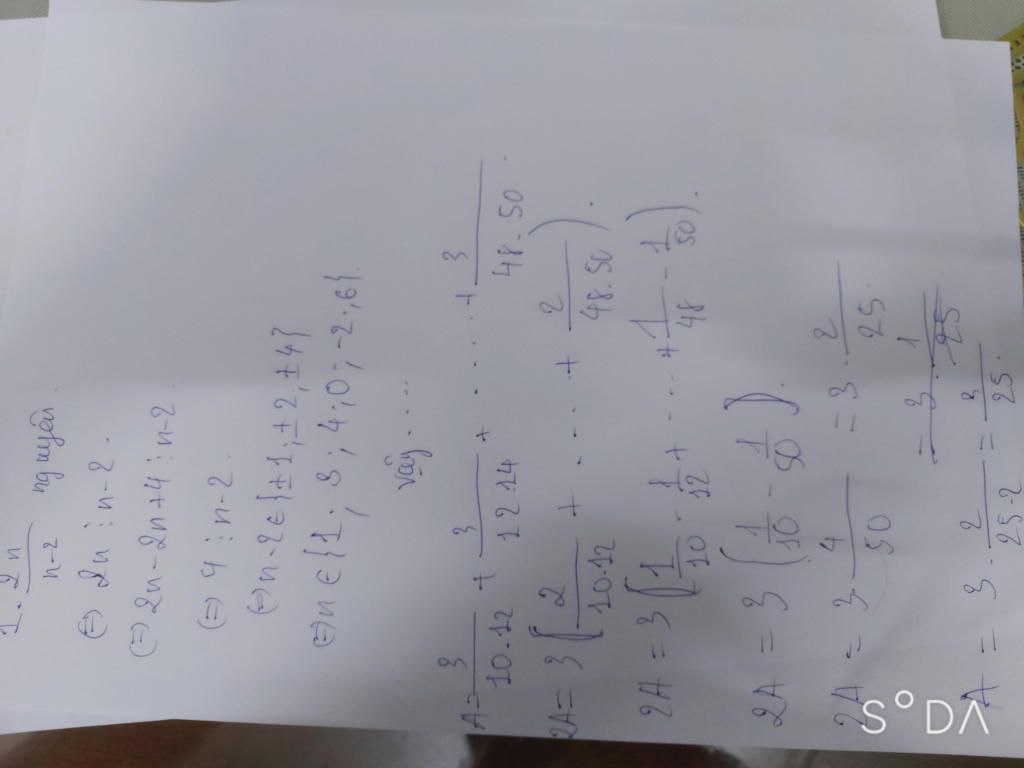 1. 2n/n-2 nguyên.
(=) 2n ⋮ n-2.
(=) 2n - 2n + 4 ⋮ n-2
(=) 4 ⋮ n-2.
(=) n-2 ∈ {±1, ±2, ±4}
(=) n ∈ {1, 3; 4; 0; -2; 6}.
vậy ....
A = 3/10.12 + 3/12.14 + .... + 3/48.50.
2A = 3 (2/10.12 + .... + 2/48.50).
2A = 3 (1/10 - 1/12 + .... + 1/48 - 1/50).
2A = 3 (1/10 - 1/50).
2A = 3. 4/50 = 3. 2/25.
= 3. 1/25
A = 3. 2/25.2 = 3/25.
S°DA